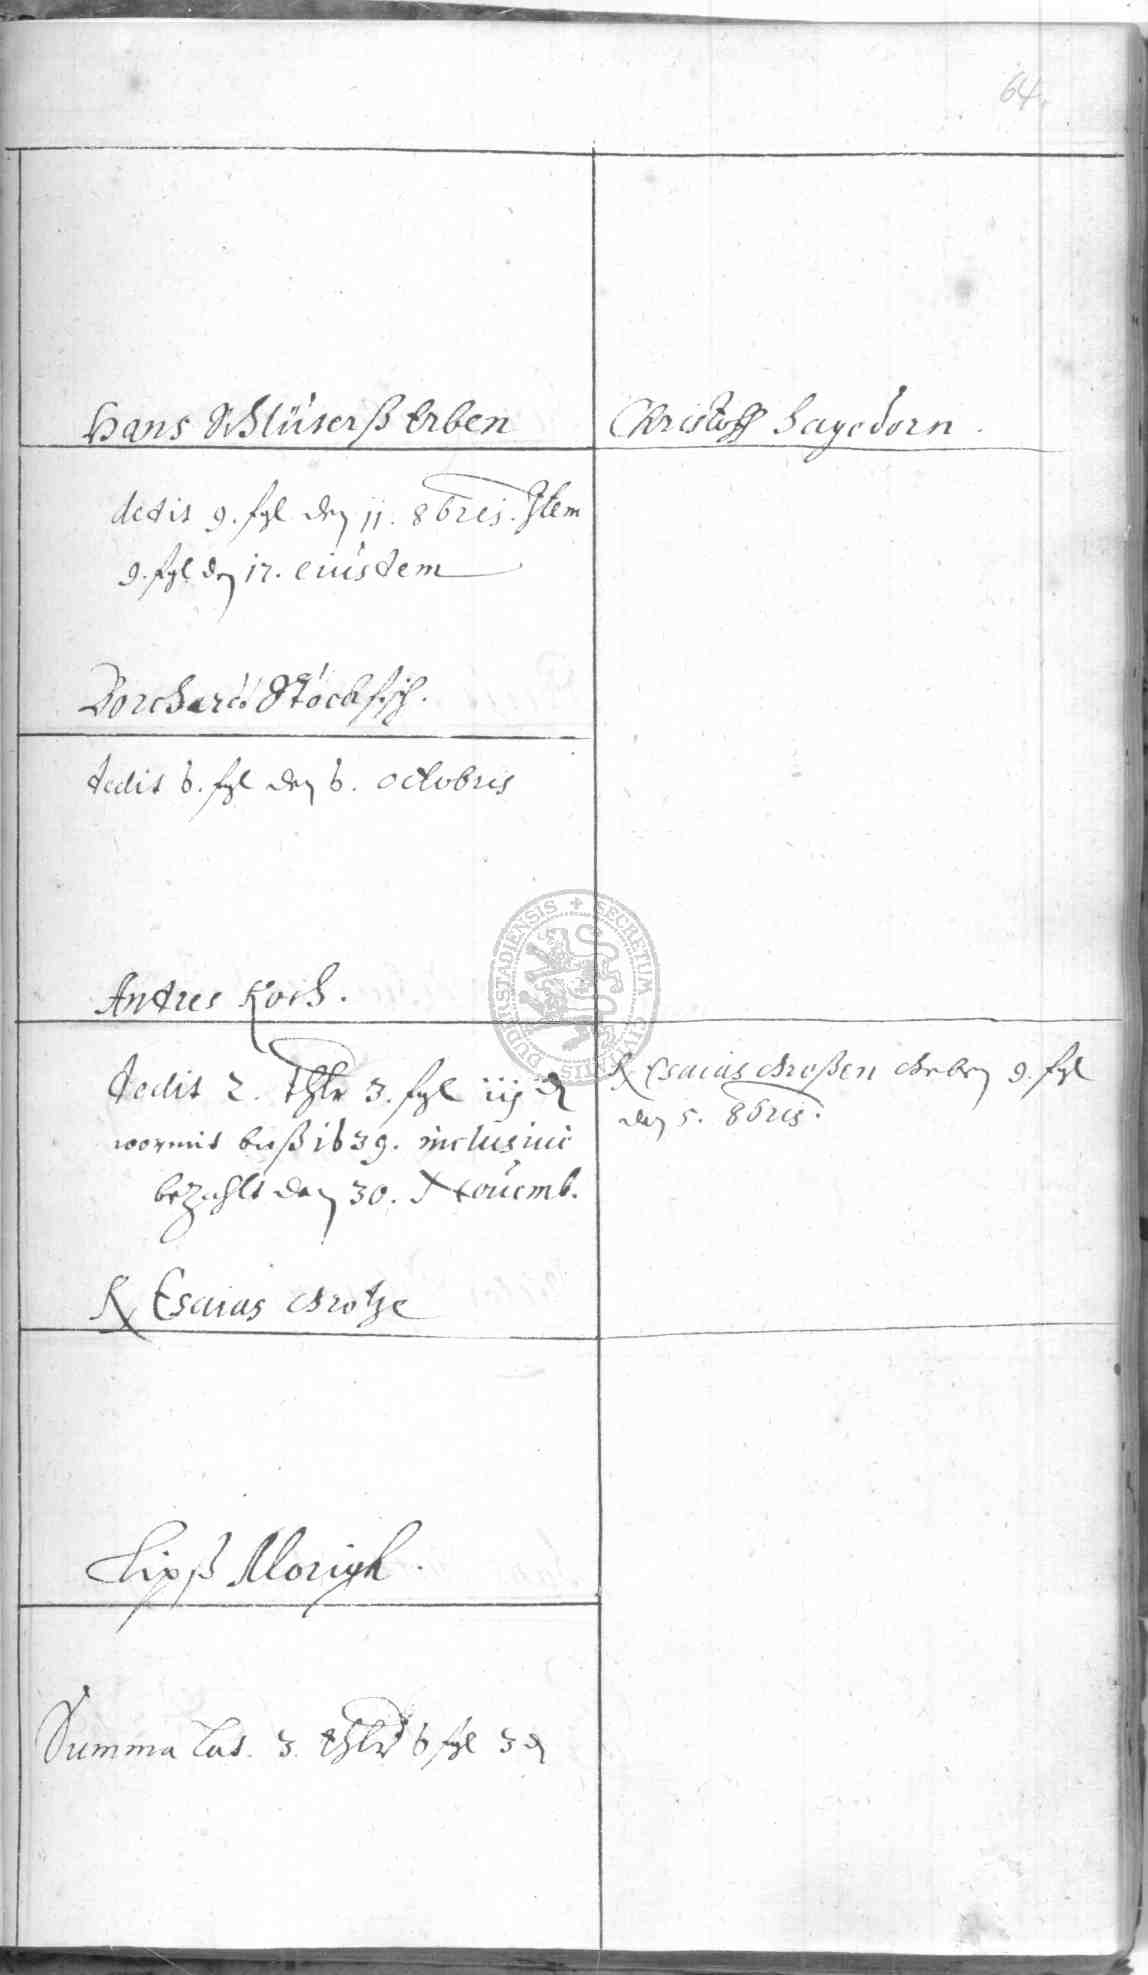 64.
Hans Schlüters Erben
dedit 9. ßgl den 11. 8bris. Item
9. ßgl den 17. eiusdem
Borchard Stockfisch.
dedit 6. ßgl den 6. octobris
Andres Koch.
dedit 2. thlr 3. ßgl iij ₰
wormit buß 1639. inclusiue
bezahlt den 30. Nouemb.
R Esaias Grotze
Lipß Morigk.
Summa Lat. 3. thlr 6 ßgl 3 ₰
Christoff Hagedorn.
R Esaias Großen Geben 9. ßgl
den 5. 8bris.
SECRETUM CIVITATIS DUDERSTADIENSIS